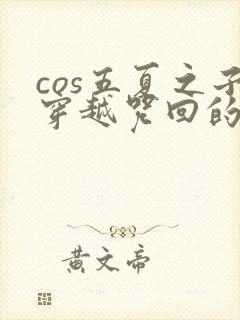 cos五夏之子
穿越咒回的
黄文帝